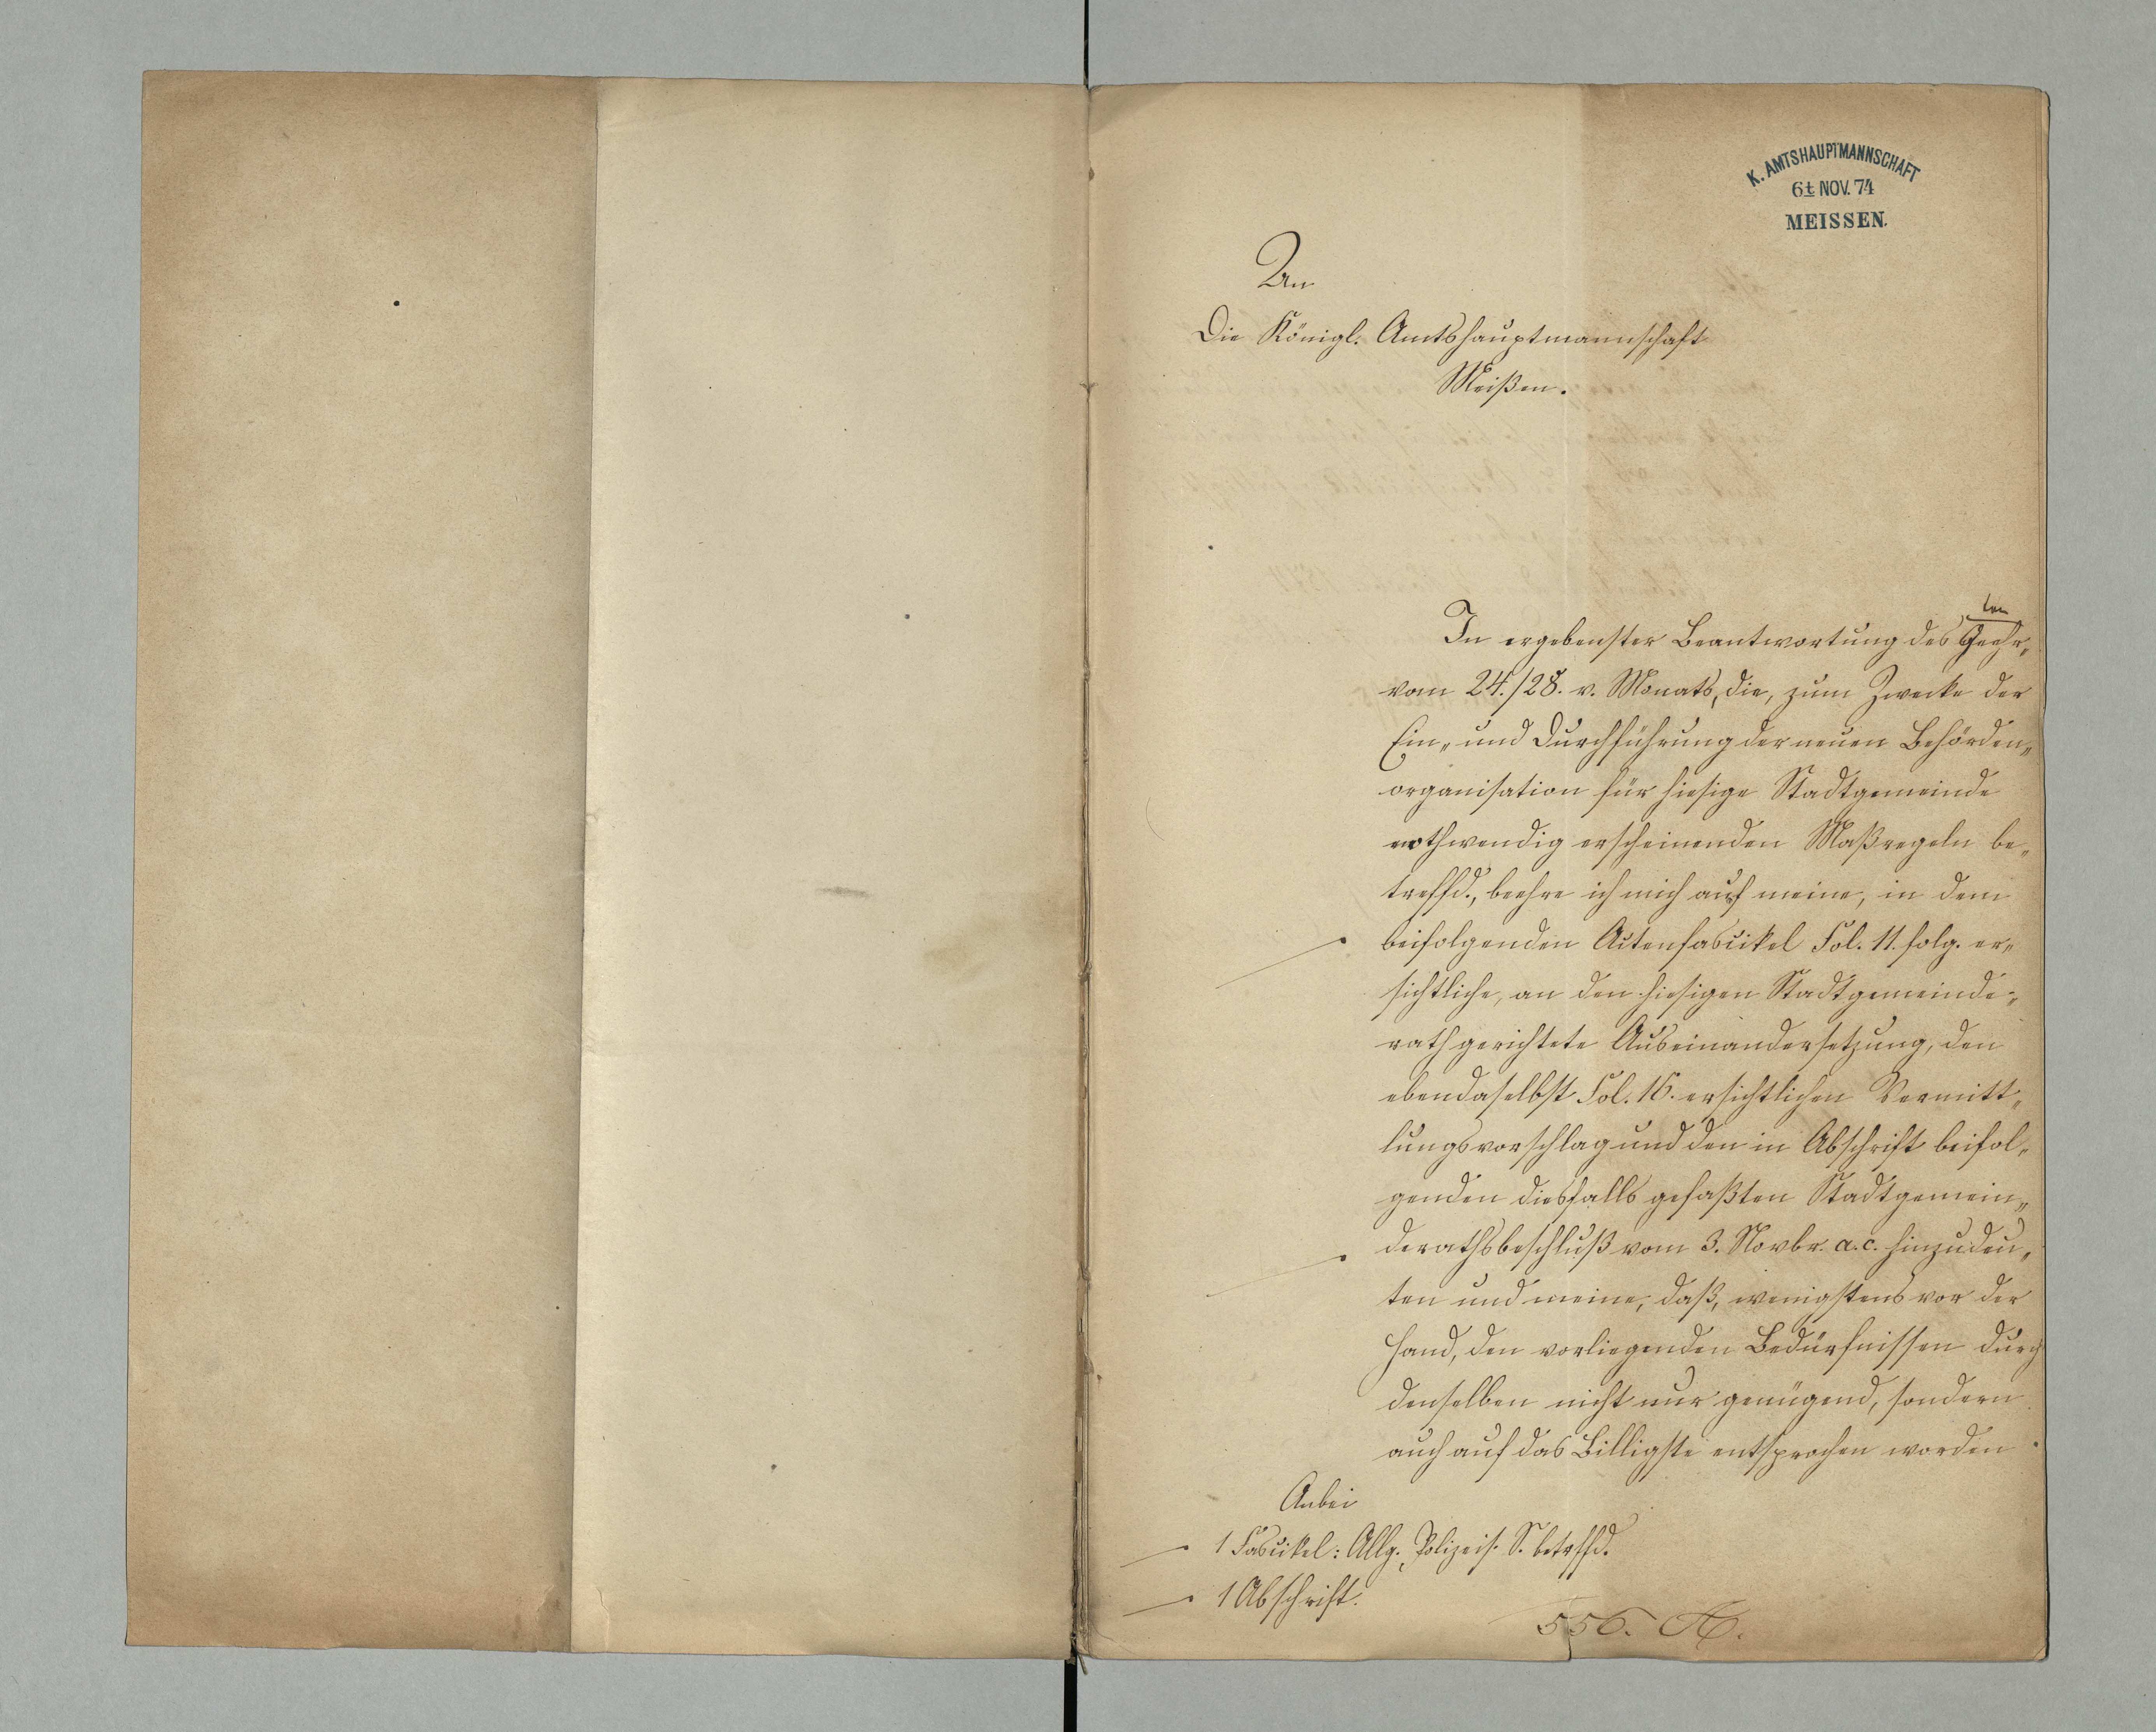 K. AMTSHAUPTMANNSCHAFT
6t NOV. 74
MEISSEN.
An
Die Königl. Amtshauptmannschaft
Meißen.
In ergebenster Beantwortung des Geehr„
ten
vom 24./28. v. Monats, die, zum Zwecke der
Ein„ und Durchführung der neuen Behörden„
organisation für hiesige Stadtgemeinde
nothwendig erscheinenden Maßregeln be„
treffd., beehre ich mich auf meine, in dem
beifolgenden Actenfascikel Fol. 11. folg. er„
sichtliche, an den hiesigen Stadtgemeinde„
rath gerichtete Auseinandersetzung, den
ebendaselbst Fol. 16. ersichtlichen Vermitt„
lungsvorschlag und den in Abschrift beifol„
genden diesfalls gefaßten Stadtgemein„
derathsbeschluß vom 3. Novbr. a.c. hinzudeu„
ten und meine, daß, wenigstens vor der
Hand, den vorliegenden Bedürfnissen durch
denselben nicht nur genügend, sondern
auch auf das Billigste entsprochen worden
Anbei
1 Fascikel: Allg. Polizeis. S. betrffd.
1 Abschrift.
556. A.